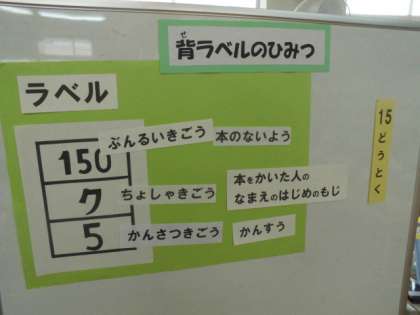 背ラベルのひみつ
せ
ラベル
150
ぶんるいきごう
本のないよう
ク
ちょしゃきごう
本をかいた人の
なまえのはじめのもじ
5
かんさつきごう
かんすう
15
どうとく